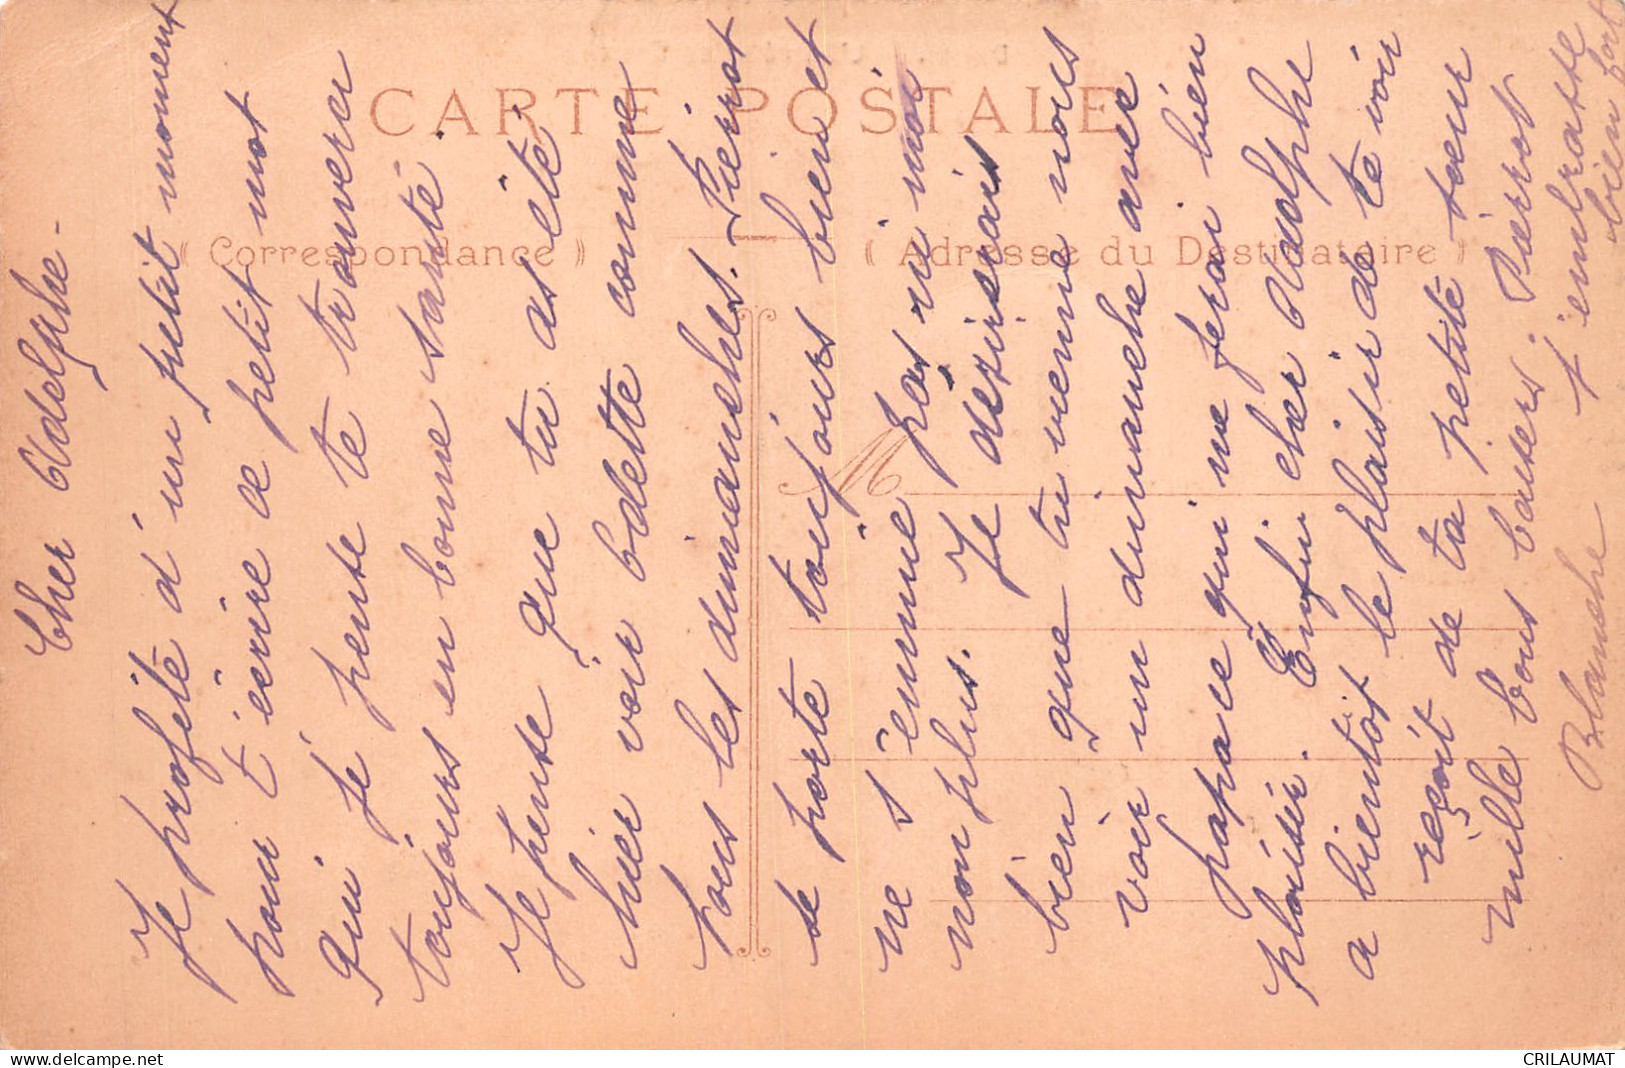 CARTE POSTALE
« Correspondance »
« Adresse du Destinataire »
M
Cher Adelphe -
Je profite d'un petit moment
pour t'ecrire ce petit mot
qui je pense te trouvera
toujours en bonne santé.
Je pense que tu as été
hier voir Odette comme
tous les dimanches. Pierrot
se porte toujours bien et
ne s'ennuie pas ni moi
non plus. Je desirerais
bien que tu vienne nous
voir un dimanche avec
papa ce qui me ferai bien
plaisir. Enfin cher Adolphe
a bientôt le plaisir de te voir
reçoit de ta petite sœur
mille bons baisers. Pierrot
t'embrasse
bien fort
Blanche
www.delcampe.net
CRILAUMAT